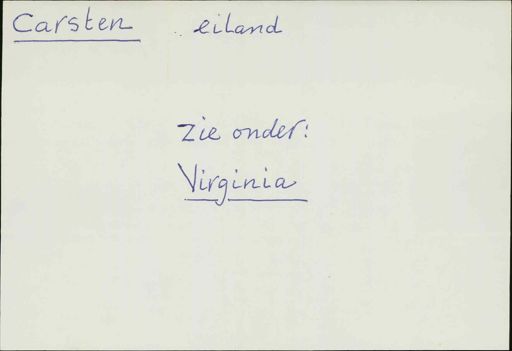 Carsten eiland
zie onder:
Virginia